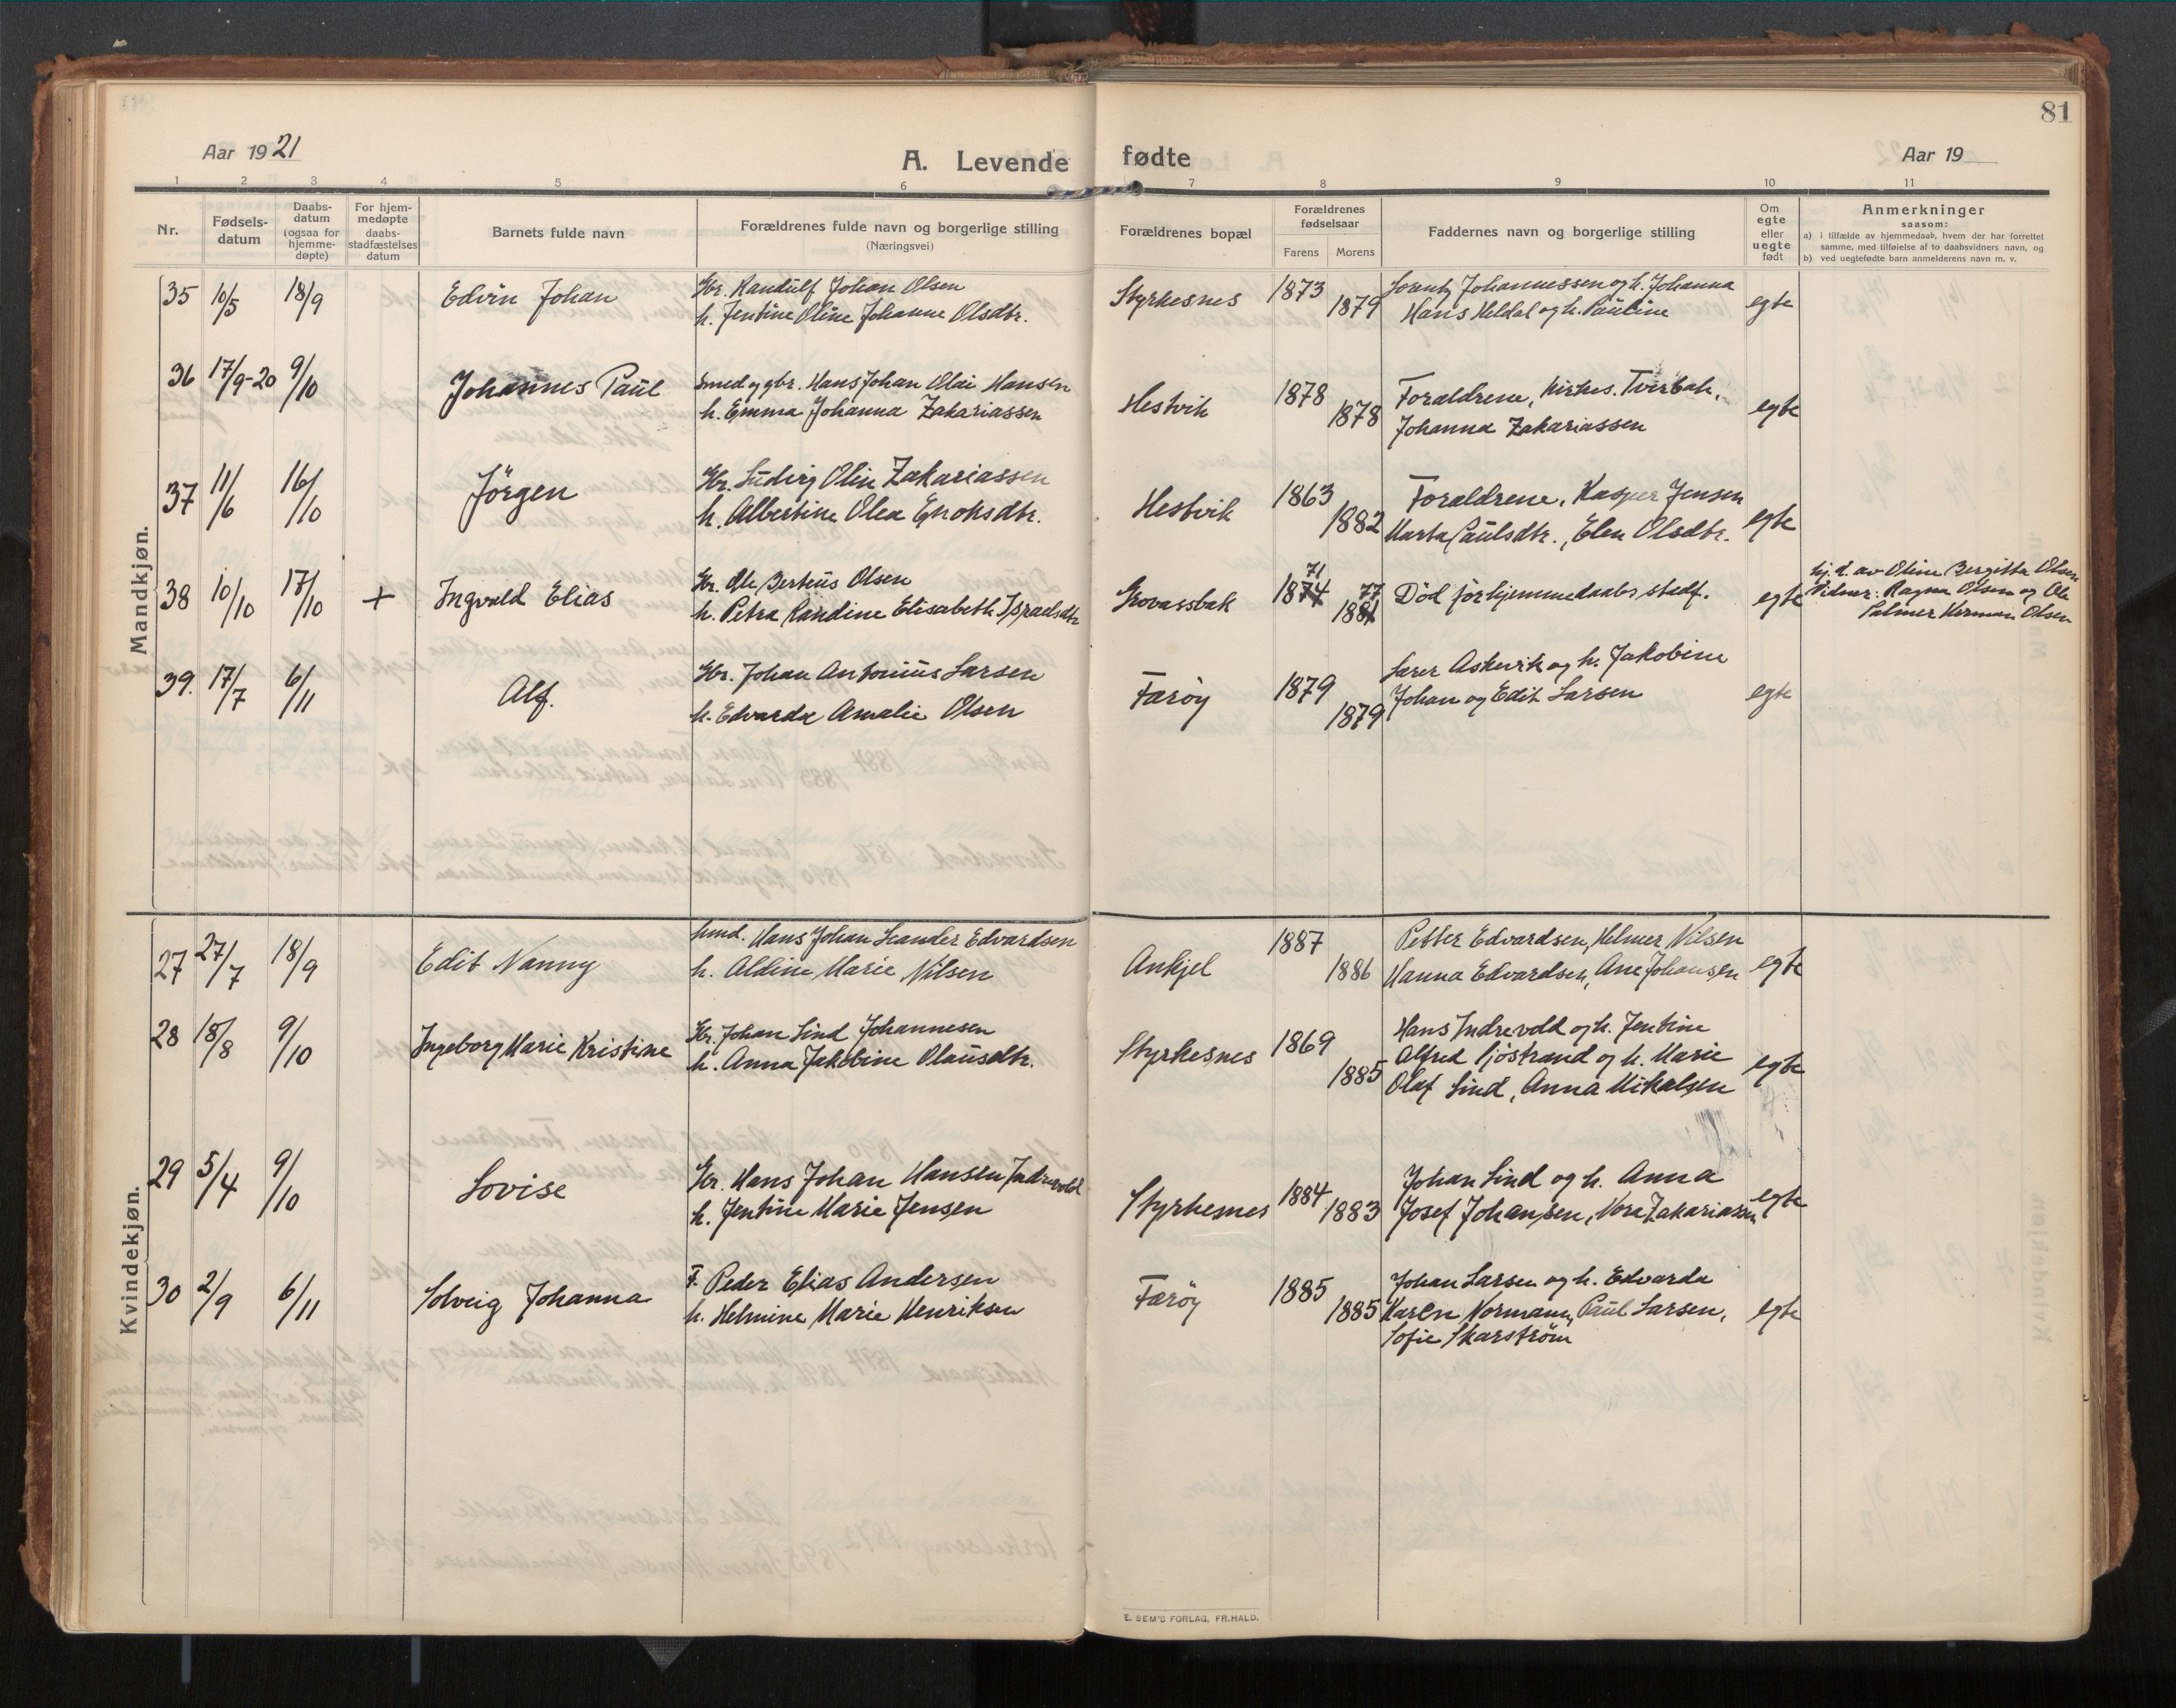 81
Aar 1921
A. Levende fødte
Aar 19
1 2 3 4 5 6 7 8 9 10 11
Nr.
Fødsels-
datum
Daabs-
datum
(ogsaa for
hjemme-
døpte)
For hjem-
medøpte
daabs-
stadfæstelses
datum
Barnets fulde navn
Forældrenes fulde navn og borgerlige stilling
(Næringsvei)
Forældrenes bopæl
Forældrenes
fødselsaar
Farens Morens
Faddernes navn og borgerlige stilling
Om
egte
eller
uegte
født
Anmerkninger
saasom:
a) i tilfælde av hjemmedaab, hvem der har forrettet
samme, med tilføielse af to daabsvidners navn, og
b) ved uegtefødte barn anmelderens navn m. v.
Mandkjøn.
35 10/5 18/9 Edvin Johan Gbr. Randulf Johan Olsen Styrkesnes 1873 Lorentz Johannessen og h. Johanna egte
h. Jentine Oline Johanne Olsdtr. 1879 Hans Heldal og h. Pauline
36 17/9-20 9/10 Johannes Paul Smed og gbr. Hans Johan Olai Hansen Hestvik 1878 Forældrene, Kirkes. Tverbak, egte
h. Emma Johanna Zakariassen 1878 Johanna Zakariassen
37 11/6 16/10 Jörgen Gbr. Ludvig Olin Zakariassen Hestvik 1863 Forældrene, Kasper Jensen egte
h. Albertine Olea Enoksdtr. 1882 Marta Paulsdtr., Elen Olsdtr.
38 10/10 17/10 + Ingvald Elias Gbr. Ole Berteus Olsen Grovassbak 1874 71 Død før hjemmedaabs stadf. egte hj. d. av Oline Bergitta Olsen
h. Petra Randine Elisabeth Israelsdtr 1881 77 Vidner: Ragna Olsen og Ole
Palmer Herman Olsen
39. 17/7 6/11 Alf. Gbr. Johan Antonius Larsen Færöy 1879 Askevik og h. Jakobine egte
h. Edvarda Amalie Olsen 1879 Johan og Edit Larsen
Kvindekjøn.
27 27/7 18/9 Edit Nanny Hans Johan Leander Edvardsen Ankjel 1887 Petter Edvardsen, Helmer Nilsen egte
h. Aldine Marie Nilsen 1886 Hanna Edvardsen, Ane Johansen
28 18/8 9/10 Ingeborg Marie Kristine Gbr. Johan Lind Johannesen Styrkesnes 1869 Hans Indrevold og h. Jentine egte
h. Anna Jakobine Olausdtr. 1885 Alfred Sjöstrand og h. Marie
Olaf Lind, Anna Mikalsen
29 5/4 9/10 Lovise Gbr. Hans Johan Hansen Indrevold Styrkesnes 1884 Johan Lind og h. Anna egte
h. Jentine Marie Jensen 1883 Josef Johansen, Nora Zakariassen
30 2/9 6/11 Solveig Johanna F. Peder Elias Andersen Færöy 1885 Johan Larsen og h. Edvarda egte
h. Helmine Marie Henriksen 1885 Karen Normann, Paul Larsen,
Sofie Skarström
E. SEM'S FORLAG, FR.HALD.